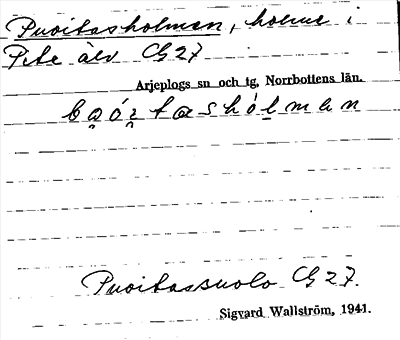 Puoitasholmen, holme i
Pite älv G 27
Arjeplogs sn och tg, Norrbottens län.
Puoitassuolo G 27.
Sigvard Wallström, 1941.